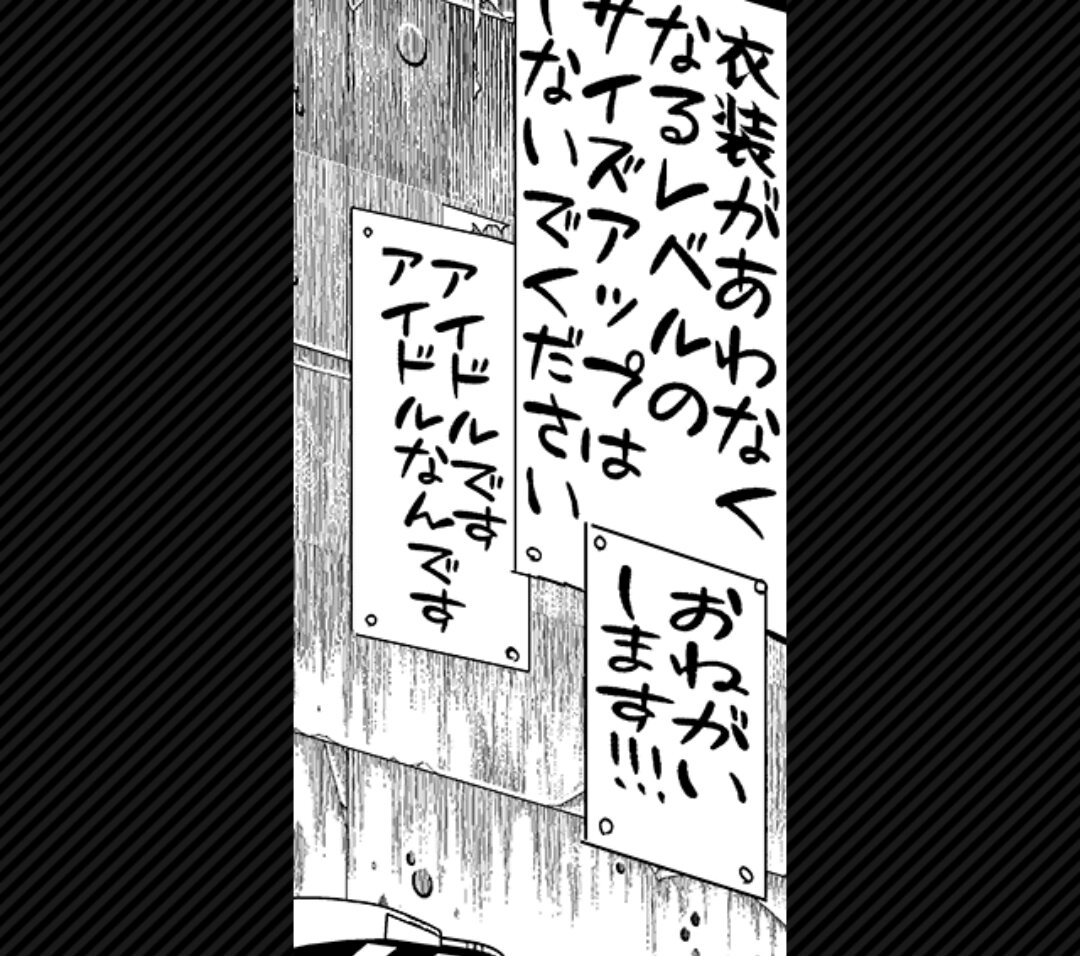 衣装があわなく
なるレベルの
サイズアップは
しないでください
おねがい
します!!!
アイドルです
アイドルなんです